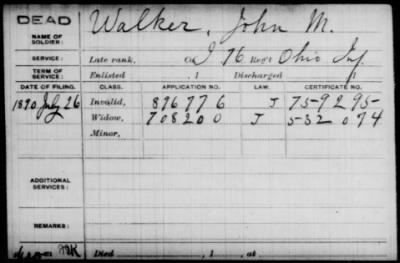 DEAD
NAME OF SOLDIER: Walker, John M.
SERVICE: Late rank, Co. I, 76 Reg't Ohio Inf
TERM OF SERVICE: Enlisted , 1 Discharged , 1
DATE OF FILING. CLASS. APPLICATION NO. LAW. CERTIFICATE NO.
1890 July 26 Invalid, 876776 J 759295
Widow, 708200 J 532074
Minor,
ADDITIONAL SERVICES:
REMARKS:
Died , 1 , at